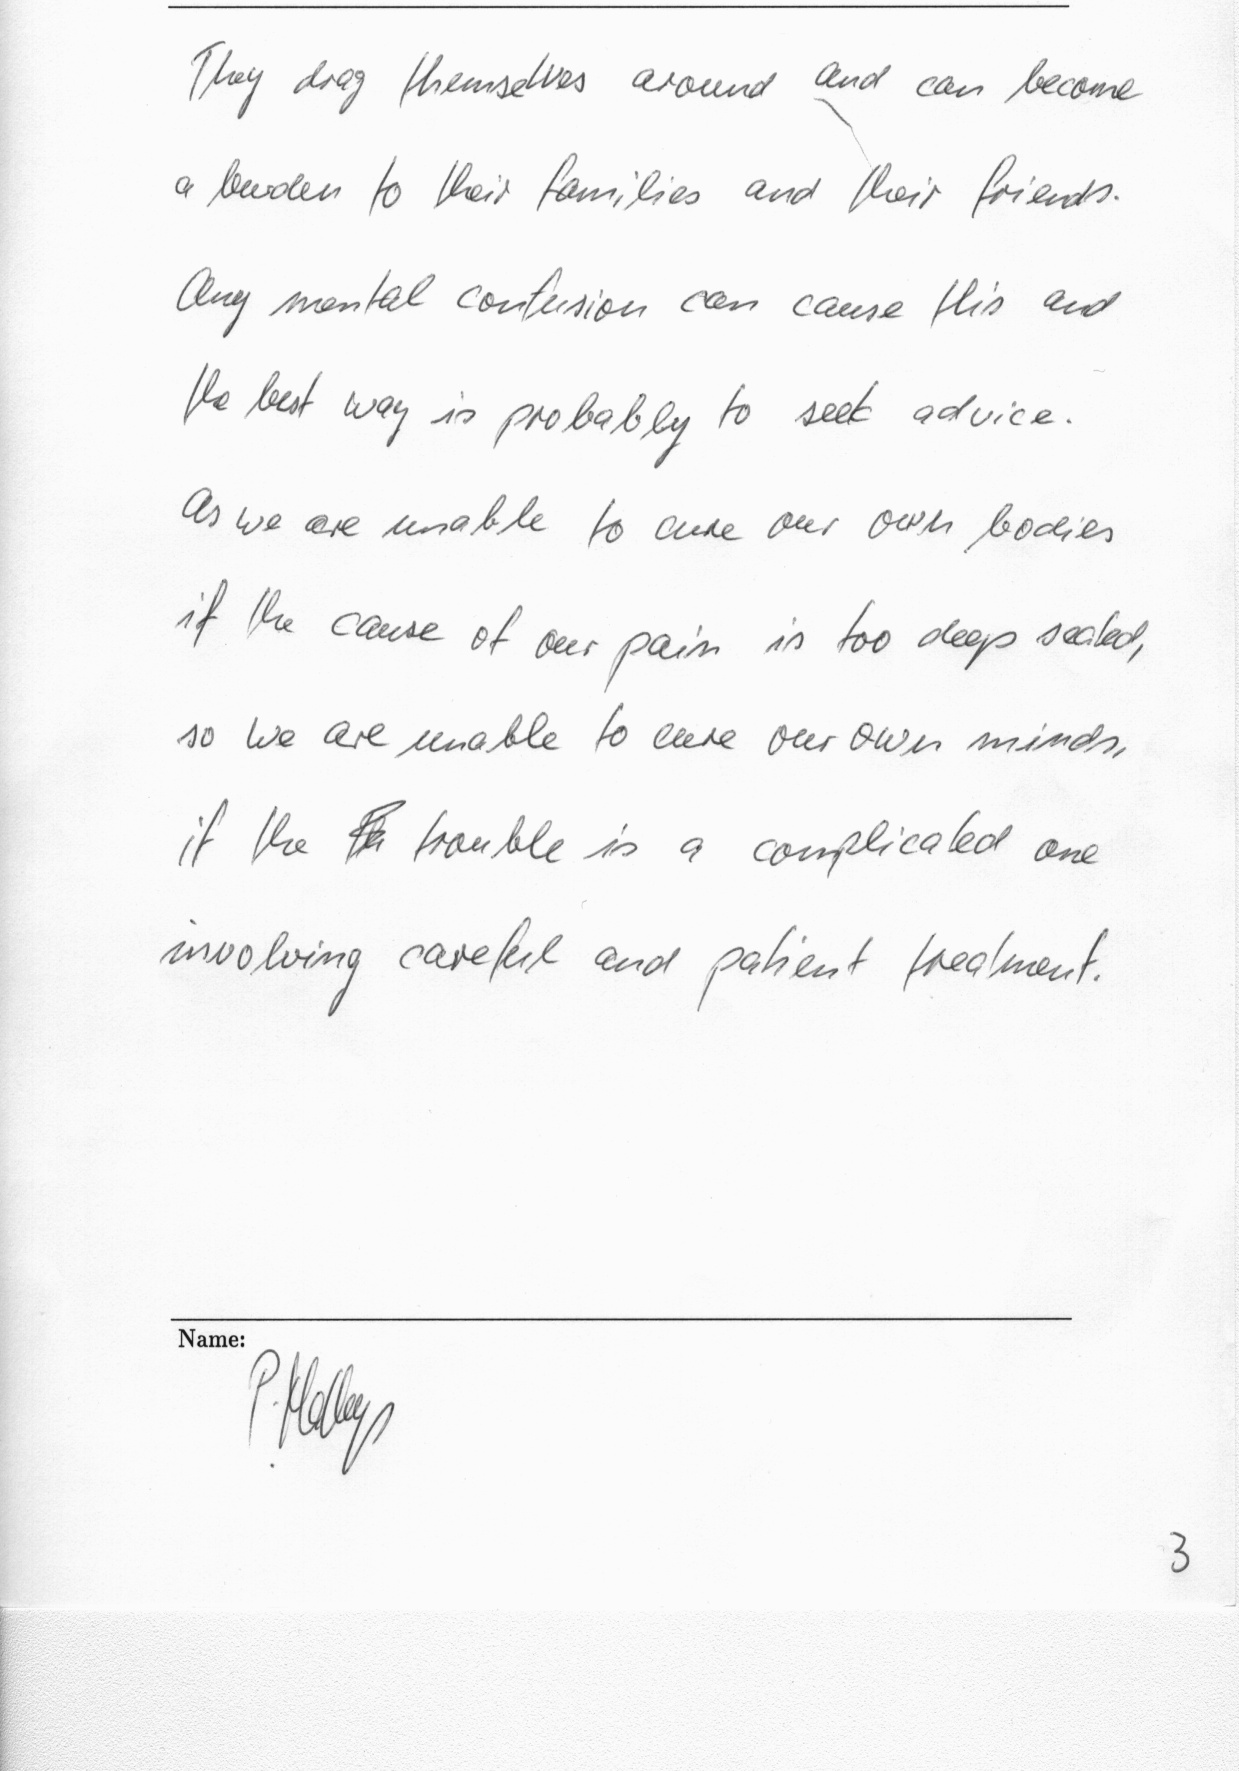 They drag themselves around and can become
a burden to their families and their friends.
Any mental confusion can cause this and
the best way is probably to seek advice.
As we are unable to cure our own bodies
if the cause of our pain is too deep seated,
so we are unable to cure our own minds,
if the trouble is a complicated one
involving careful and patient treatment.
Name:
P.
3